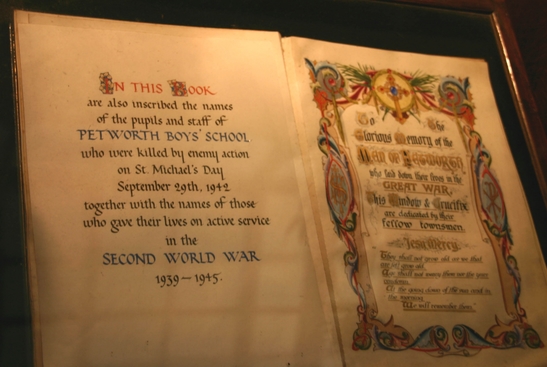 IN THIS BOOK
are also inscribed the names
of the pupils and staff of
PETWORTH BOYS' SCHOOL
who were killed by enemy action
on St. Michael's Day
September 29th, 1942
together with the names of those
who gave their lives on active service
in the
SECOND WORLD WAR
1939-1945.
To The
Glorious Memory of the
Men of Petworth
who laid down their lives in the
GREAT WAR,
This Window & Crucifix
are dedicated by their
fellow townsmen.
Jesu Mercy.
They shall not grow old as we that
are left grow old.
Age shall not weary them nor the years
condemn.
At the going down of the sun and in
the morning
We will remember them."